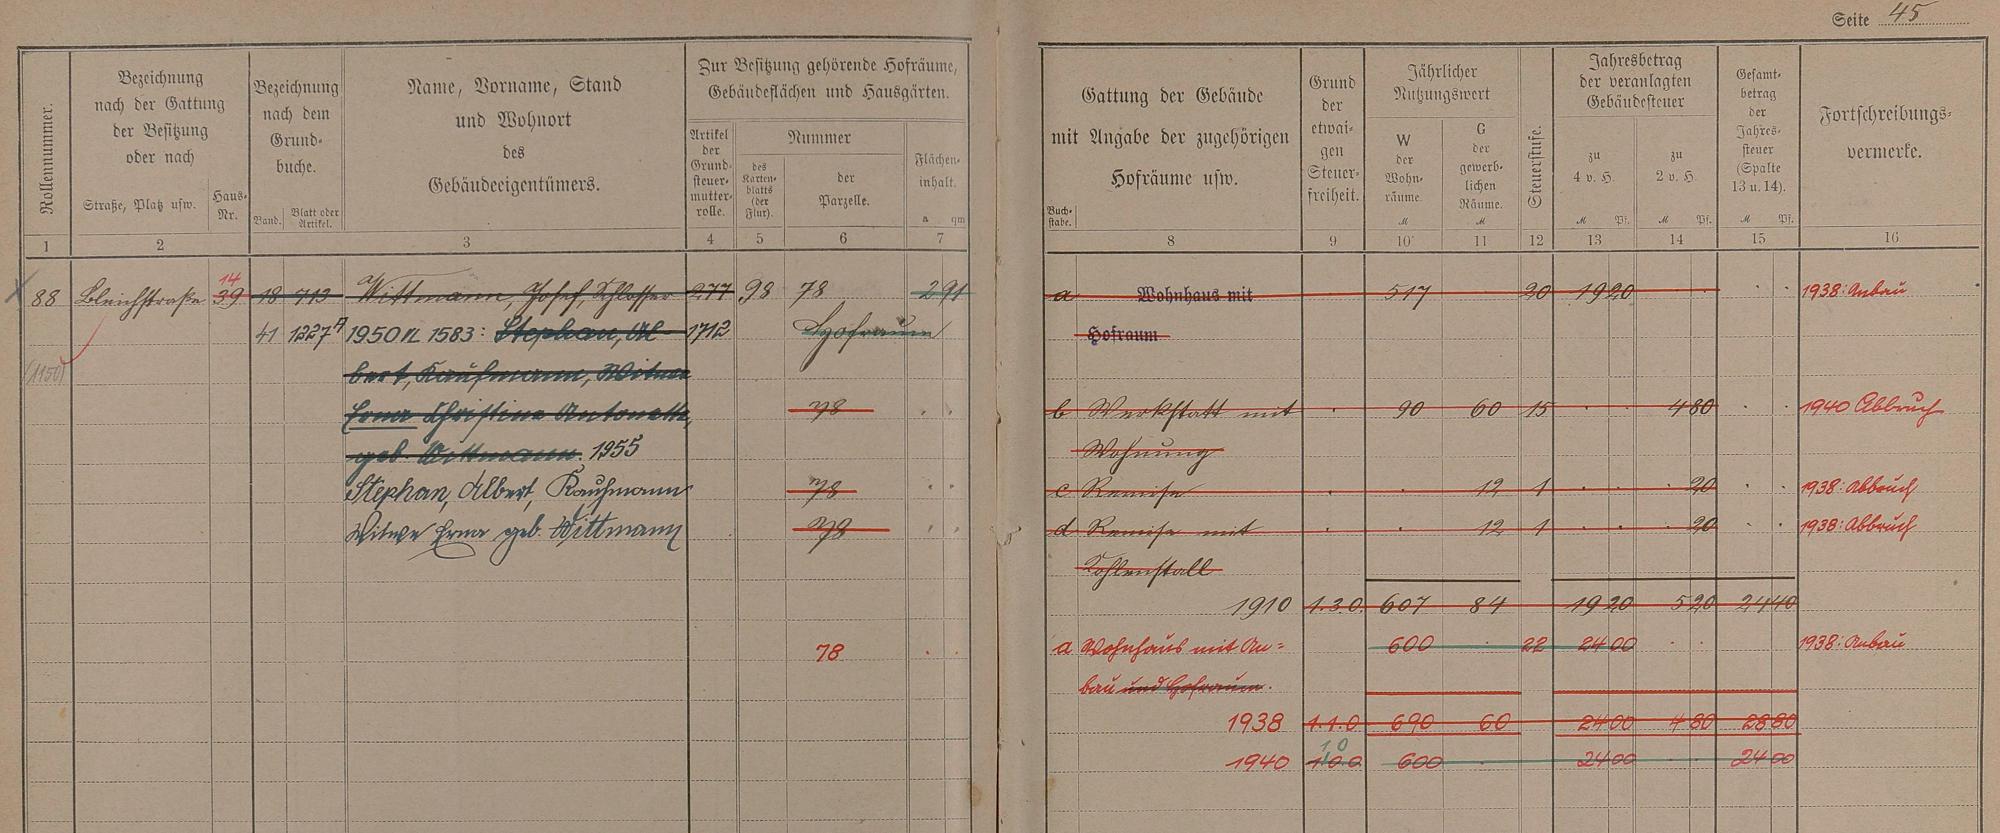 Seite 45
Rollennummer.
Bezeichnung
nach der Gattung
der Besitzung
oder nach
Straße, Platz usw.
Haus-
Nr.
Bezeichnung
nach dem
Grund-
buche.
Band.
Blatt oder
Artikel.
Name, Vorname, Stand
und Wohnort
des
Gebäudeeigentümers.
Zur Besitzung gehörende Hofräume,
Gebäudeflächen und Hausgärten.
Artikel
der
Grund-
steuer-
mutter-
rolle.
Nummer
des
Karten-
blatts
(der
Flur).
der
Parzelle.
Flächen-
inhalt.
a qm
Buch-
stabe.
Gattung der Gebäude
mit Angabe der zugehörigen
Hofräume usw.
Grund
der
etwai-
gen
Steuer-
freiheit.
Jährlicher
Nutzungswert
W
der
Wohn-
räume.
M
G
der
gewerb-
lichen
Räume.
M
Steuerstufe.
Jahresbetrag
der veranlagten
Gebäudesteuer
zu
4 v. H.
M Pf.
zu
2 v. H.
M Pf.
Gesamt-
betrag
der
Jahres-
steuer
(Spalte
13 u. 14).
M Pf.
Fortschreibungs-
vermerke.
1 2 3 4 5 6 7 8 9 10 11 12 13 14 15 16
14
88 Bleichstraße 39 18 713 Wittmann, Josef, Schlosser 277 98 78 2 91 a Wohnhaus mit 517 20 19 20 1938: Anbau
41 1227 A 1950 N. 1583: Stephan, Al- 1712 Hofraum Hofraum
(1150) bert, Kaufmann, Witwe
Erna Christine Antonette, 78 b Werkstatt mit 90 60 15 4 80 1940 Abbruch
geb. Wittmann. 1955 Wohnung
Stephan, Albert, Kaufmann 78 c Remise 12 1 20 1938: Abbruch
Witwe Erna geb. Wittmann 78 d Remise mit 12 1 20 1938: Abbruch
Kohlenstall
1910 1.3.0. 607 84 19 20 5 20 24 40
78 a Wohnhaus mit An= 600 22 24 00 1938: Anbau
bau und Hofraum.
1938 1.1.0 690 60 24 00 4 80 28 80
1 0
1940 1 0 0 600 24 00 24 00